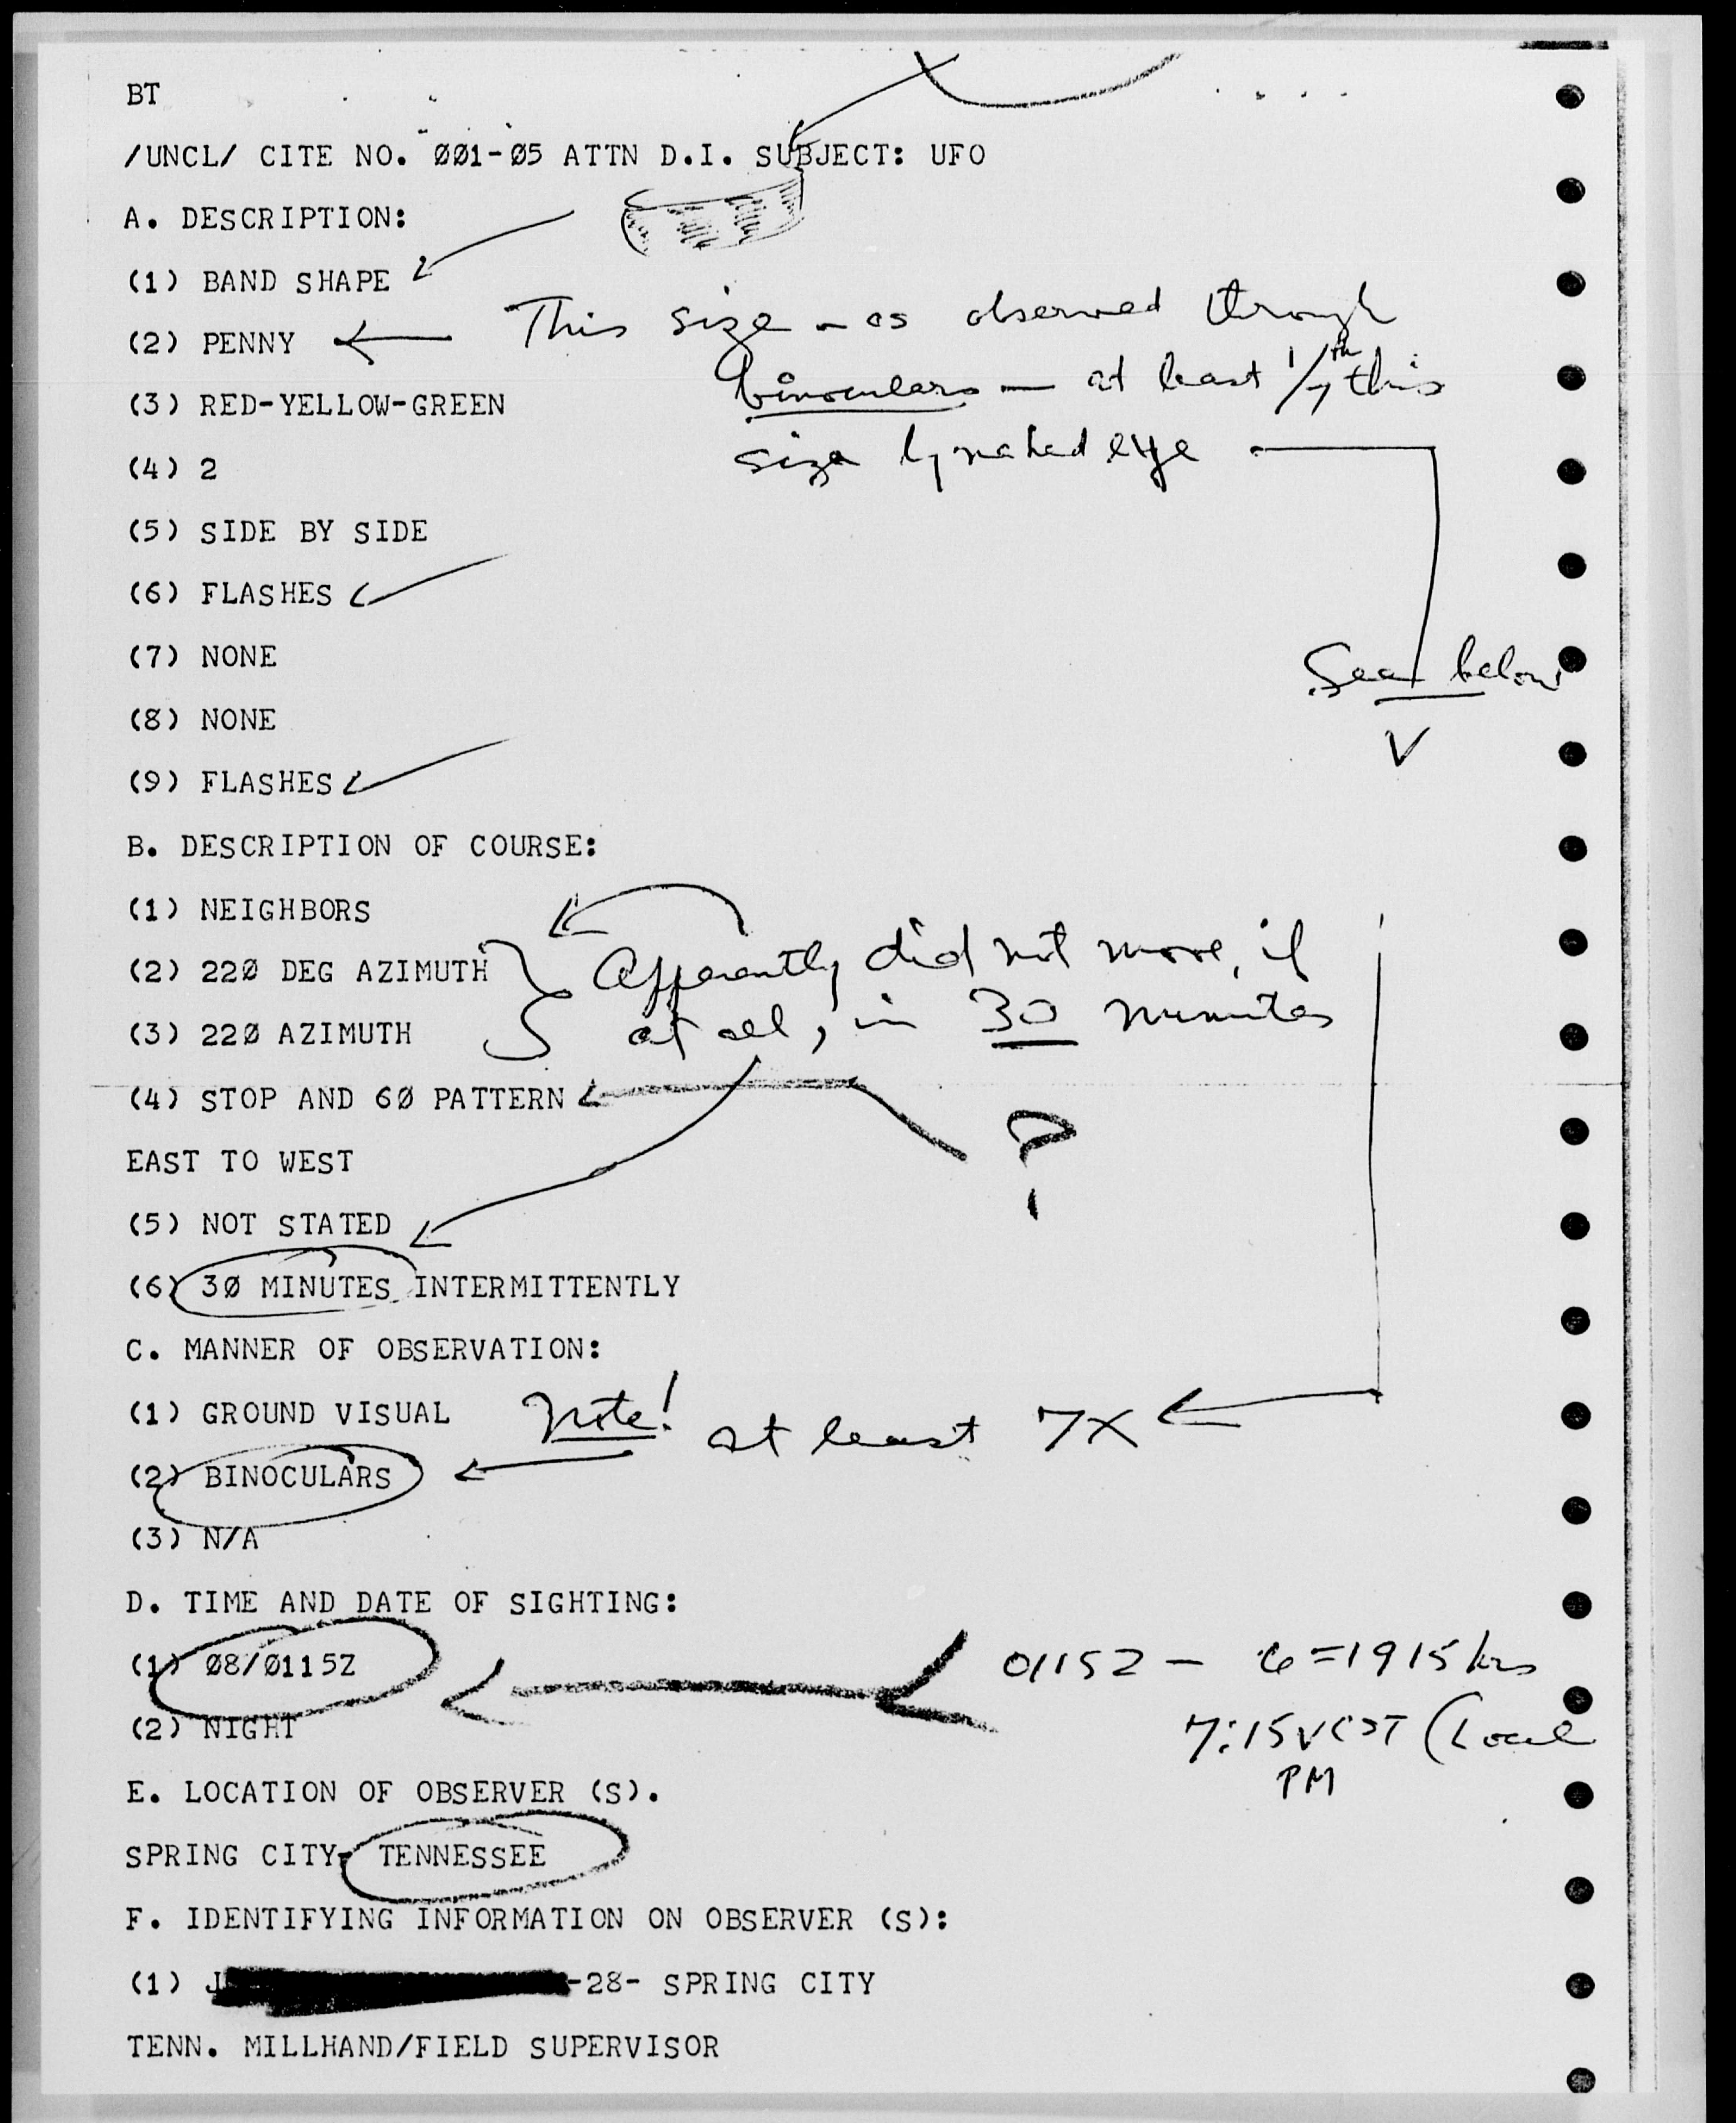 BT
/UNCL/ CITE NO. ØØ1-Ø5 ATTN D.I. SUBJECT: UFO
A. DESCRIPTION:
(1) BAND SHAPE
(2) PENNY This size - as observed through
binoculars — at least 1/7th this
size by naked eye
(3) RED-YELLOW-GREEN
(4) 2
(5) SIDE BY SIDE
(6) FLASHES
(7) NONE
See below
(8) NONE
(9) FLASHES
B. DESCRIPTION OF COURSE:
(1) NEIGHBORS
(2) 22Ø DEG AZIMUTH Apparently did not move, if
(3) 22Ø AZIMUTH at all, in 30 minutes
(4) STOP AND 6Ø PATTERN
?
EAST TO WEST
(5) NOT STATED
(6) 3Ø MINUTES INTERMITTENTLY
C. MANNER OF OBSERVATION:
(1) GROUND VISUAL Note! at least 7X
(2) BINOCULARS
(3) N/A
D. TIME AND DATE OF SIGHTING:
(1) Ø8/Ø115Z 0115Z - 6 = 1915 hrs
(2) NIGHT 7:15 CST (Local
PM
E. LOCATION OF OBSERVER (S).
SPRING CITY, TENNESSEE
F. IDENTIFYING INFORMATION ON OBSERVER (S):
(1) J -28- SPRING CITY
TENN. MILLHAND/FIELD SUPERVISOR